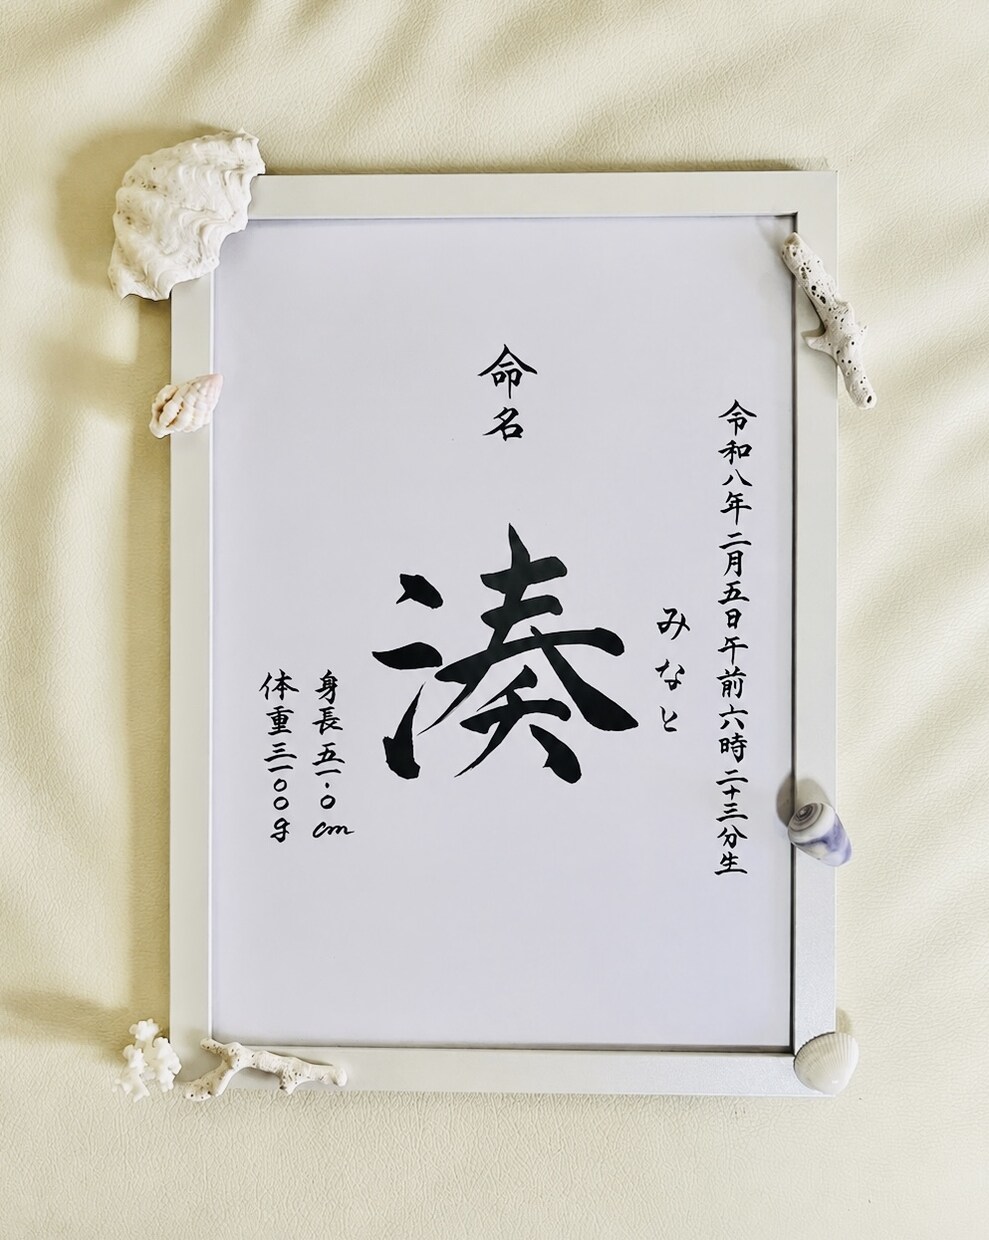 令和八年二月五日午前六時二十三分生
みなと
命名
湊
身長五一.0cm
体重三一00g